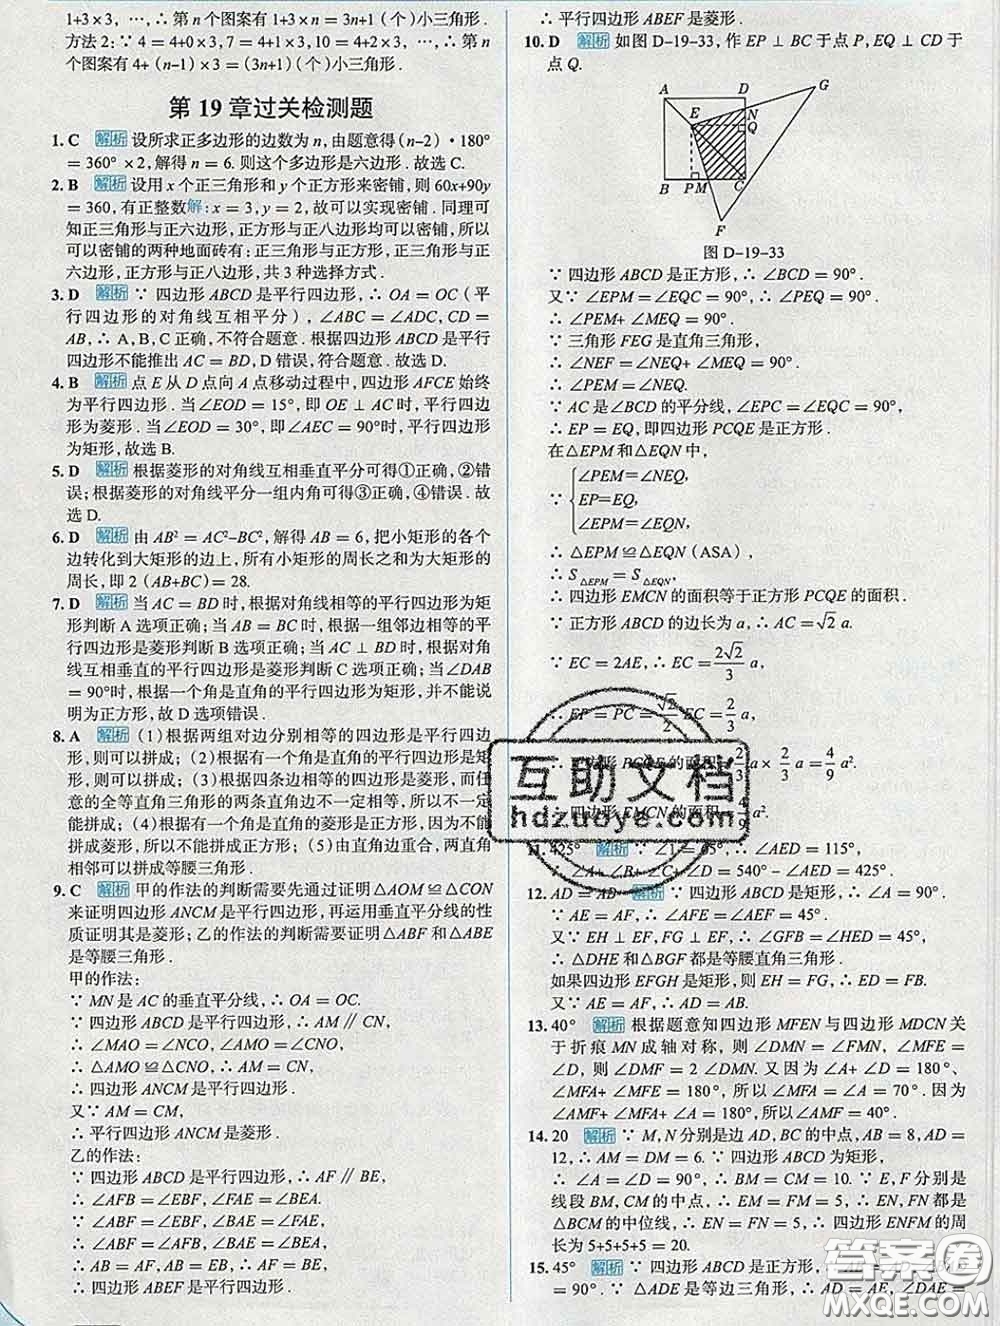 1+3×3, …,∴ 第 n 个图案有 1+3×n=(3n+1)(个)小三角形.
方法 2:∵ 4=4+0×3,7=4+1×3,10=4+2×3,…,∴ 第 n
个图案有 4+(n-1)×3=(3n+1)(个)小三角形.
第 19 章过关检测题
1. C 解析 设所求正多边形的边数为 n,由题意得(n-2)·180°
=360°×2,解得 n=6. 则这个多边形是六边形. 故选 C.
2. B 解析 设用 x 个正三角形和 y 个正方形来密铺,则 60x+90y
=360,有正整数解:x=3,y=2,故可以实现密铺. 同理可
知正三角形与正六边形,正方形与正八边形均可以密铺,所以
可以密铺的两种地面砖有:正三角形与正方形,正三角形与正
六边形,正方形与正八边形,共 3 种选择方式.
3. D 解析 ∵ 四边形 ABCD 是平行四边形,∴ OA=OC(平
行四边形的对角线互相平分),∠ABC=∠ADC,CD=
AB,∴ A,B,C 正确,不符合题意. 根据四边形 ABCD 是平行
四边形不能推出 AC=BD,D 错误,符合题意. 故选 D.
4. B 解析 点 E 从 D 点向 A 点移动过程中,四边形 AFCE 始终
为平行四边形. 当∠EOD=15°,即 OE⊥AC 时,平行四边
形为菱形. 当∠EOD=30°,即∠AEC=90°时,平行四边形
为矩形,故选 B.
5. D 解析 根据菱形的对角线互相垂直平分可得①正确,②错
误;根据菱形的对角线平分一组内角可得③正确,④错误. 故
选 D.
6. D 解析 由 AB²=AC²-BC²,解得 AB=6,把小矩形的各个
边转化到大矩形的边上,所有小矩形的周长之和为大矩形的
周长,即 2(AB+BC)=28.
7. D 解析 当 AC=BD 时,根据对角线相等的平行四边形为矩
形判断 A 选项正确;当 AB=BC 时,根据一组邻边相等的平
行四边形是菱形判断 B 选项正确;当 AC⊥BD 时,根据对角
线互相垂直的平行四边形是菱形判断 C 选项正确;当∠DAB
=90°时,根据有一个角是直角的平行四边形为矩形,并不能说
明为正方形,故 D 选项错误.
8. A 解析 (1)根据两组对边分别相等的四边形是平行四边
形,则可以拼成;(2)根据有一个角是直角的平行四边形是矩
形,则可以拼成;(3)根据四条边相等的四边形是菱形,而任
意的全等直角三角形的两条直角边不一定相等,所以不一定
能拼成;(4)根据有一个角是直角的菱形是正方形,因为不能
拼成菱形,所以不能拼成正方形;(5)由直角边重合,两直角
相邻可以拼成等腰三角形.
9. C 解析 甲的作法的判断需要先通过证明△AOM≌△CON
来证明四边形 ANCM 是平行四边形,再运用垂直平分线的性
质证明其是菱形;乙的作法的判断需要证明△ABF 和△ABE
是等腰三角形.
甲的作法:
∵ MN 是 AC 的垂直平分线,∴ OA=OC.
∵ 四边形 ABCD 是平行四边形,∴ AM∥CN,
∴ ∠MAO=∠NCO,∠AMO=∠CNO,
∴ △AMO≌△CNO,∴ AM=CN,
∴ 四边形 ANCM 是平行四边形.
又∵ AM=CM,
∴ 平行四边形 ANCM 是菱形.
乙的作法:
∵ 四边形 ABCD 是平行四边形,∴ AF∥BE,
∴ ∠AFB=∠EBF,∠FAE=∠BEA.
∵ ∠ABF=∠EBF,∠BAE=∠FAE,
∴ ∠ABF=∠AFB,∠BAE=∠BEA,
∴ AF=AB,AB=EB,∴ AF=BE,
∴ 四边形 ABEF 是平行四边形.
∴ 平行四边形 ABEF 是菱形.
10. D 解析 如图 D-19-33,作 EP⊥BC 于点 P,EQ⊥CD 于
点 Q.
A D G E N Q B P M C F
图 D-19-33
∵ 四边形 ABCD 是正方形,∴ ∠BCD=90°.
又∵ ∠EPM=∠EQC=90°,∴ ∠PEQ=90°.
∴ ∠PEM+∠MEQ=90°.
∵ 三角形 FEG 是直角三角形,
∴ ∠NEF=∠NEQ+∠MEQ=90°.
∴ ∠PEM=∠NEQ.
∵ AC 是∠BCD 的平分线,∠EPC=∠EQC=90°,
∴ EP=EQ,即四边形 PCQE 是正方形.
在△EPM 和△EQN 中,
∠PEM=∠NEQ,
∵ EP=EQ,
∠EPM=∠EQN,
∴ △EPM≌△EQN(ASA),
∴ S△EPM=S△EQN,
∴ 四边形 EMCN 的面积等于正方形 PCQE 的面积.
∵ 正方形 ABCD 的边长为 a,∴ AC=√2 a.
∵ EC=2AE,∴ EC=2√2/3 a,
∴ EP=PC=√2/2 EC=2/3 a,
PCQE 的面积=2/3 a×2/3 a=4/9 a².
∴ 四边形 EMCN 的面积=4/9 a².
11. 425° 解析 ∵ ∠1=65°,∴ ∠AED=115°,
∴ ∠A+∠B+∠C+∠D=540°-∠AED=425°.
12. AD=AB 解析 ∵ 四边形 ABCD 是矩形,∴ ∠A=90°.
∵ AE=AF,∴ ∠AFE=∠AEF=45°.
又∵ EH⊥EF,FG⊥EF,∴ ∠GFB=∠HED=45°,
∴ △DHE 和△BGF 都是等腰直角三角形.
如果四边形 EFGH 是矩形,则 EH=FG,∴ ED=FB.
又∵ AE=AF,∴ AD=AB.
13. 40° 解析 根据题意知四边形 MFEN 与四边形 MDCN 关
于折痕 MN 成轴对称,则∠DMN=∠FMN,∠MFE=
∠D,则∠DMF=2∠DMN. 又因为∠A+∠D=180°、
∠MFA+∠MFE=180°,所以∠MFA=∠A=70°. 因为
∠AMF+∠MFA+∠A=180°,所以∠AMF=40°.
14. 20 解析 ∵ M,N 分别是边 AD,BC 的中点,AB=8,AD=
12,∴ AM=DM=6. ∵ 四边形 ABCD 为矩形,
∴ ∠A=∠D=90°,∴ BM=CM=10. ∵ E,F 分别是
线段 BM,CM 的中点,∴ EM=FM=5,∴ EN,FN 都是
△BCM 的中位线,∴ EN=FN=5,∴ 四边形 ENFM 的周
长为 5+5+5+5=20.
15. 45° 解析 ∵ 四边形 ABCD 是正方形,
=90°. ∵ △ADE 是等边三角形,∴
互助文档
hdzuoye.com
答案圈
MXQE.COM